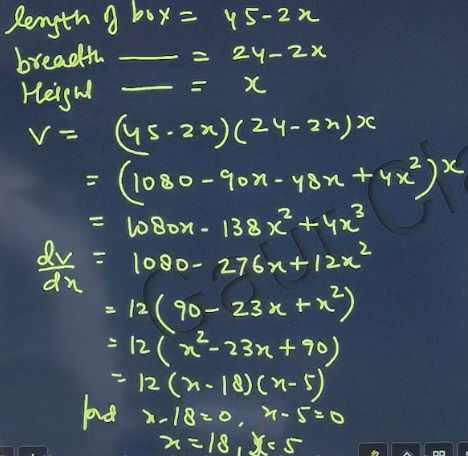 length of box = 45-2x
breadth — = 24-2x
Height — = x
V = (45-2x)(24-2x)x
= (1080-90x-48x+4x²)x
= 1080x-138x²+4x³
dv/dx = 1080-276x+12x²
= 12(90-23x+x²)
= 12(x²-23x+90)
= 12(x-18)(x-5)
x-18=0, x-5=0
x=18, x=5
Gaur Cla